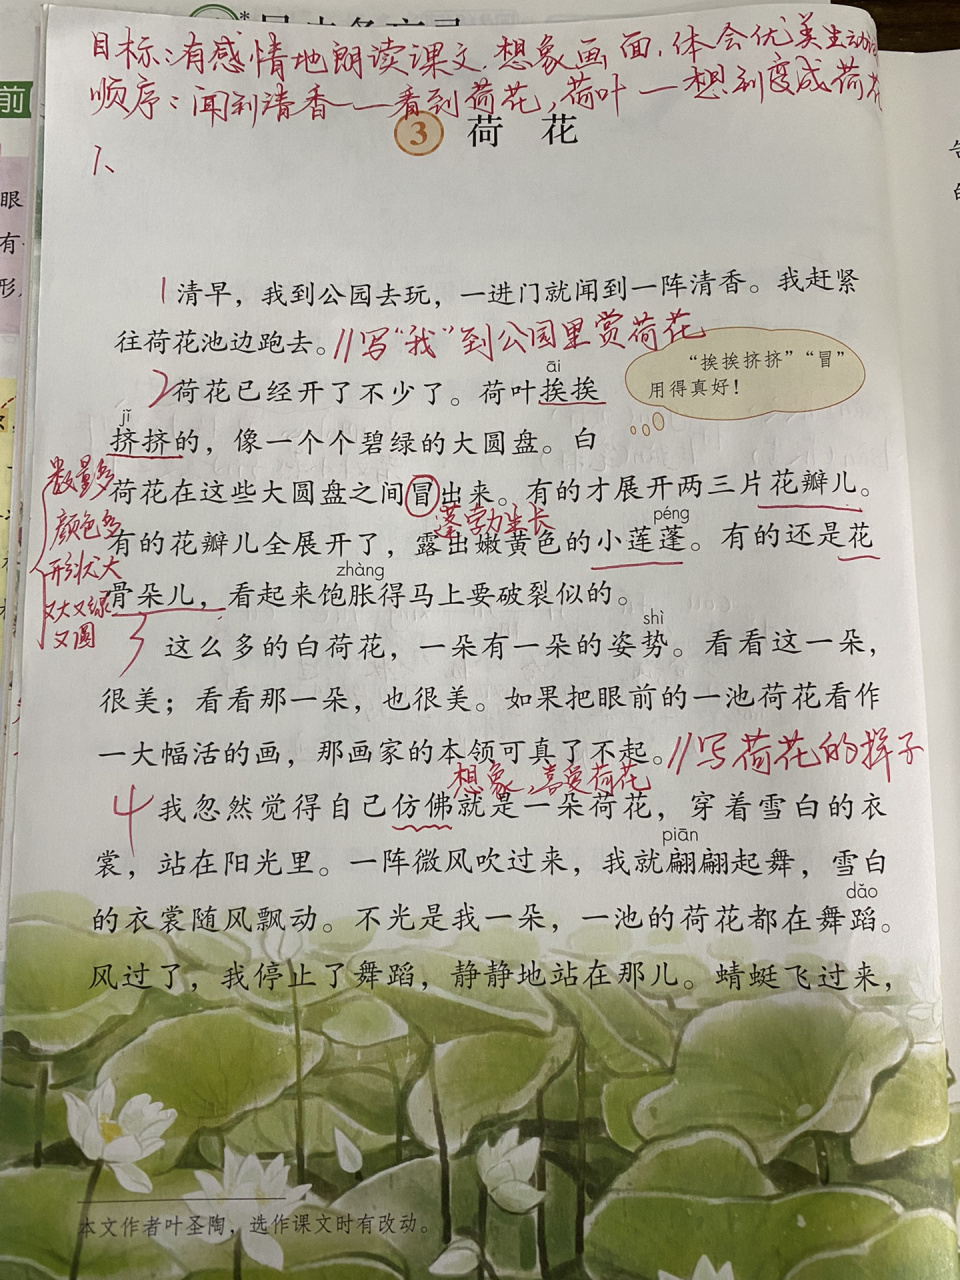 目标:有感情地朗读课文.想象画面,体会优美生动
顺序:闻到清香——看到荷花,荷叶—想到变成荷花
3 荷 花
1、
1清早，我到公园去玩，一进门就闻到一阵清香。我赶紧
往荷花池边跑去。//写“我”到公园里赏荷花
“挨挨挤挤”“冒”
用得真好！
āi
2荷花已经开了不少了。荷叶挨挨
jǐ
挤挤的，像一个个碧绿的大圆盘。白
数量多
荷花在这些大圆盘之间冒出来。有的才展开两三片花瓣儿。
蓬勃生长
颜色多
péng
有的花瓣儿全展开了，露出嫩黄色的小莲蓬。有的还是花
形状大
zhàng
又大又绿
又圆
骨朵儿，看起来饱胀得马上要破裂似的。
shì
3这么多的白荷花，一朵有一朵的姿势。看看这一朵，
很美；看看那一朵，也很美。如果把眼前的一池荷花看作
一大幅活的画，那画家的本领可真了不起。//写荷花的样子
想象,喜爱荷花
4我忽然觉得自己仿佛就是一朵荷花，穿着雪白的衣
piān
裳，站在阳光里。一阵微风吹过来，我就翩翩起舞，雪白
dǎo
的衣裳随风飘动。不光是我一朵，一池的荷花都在舞蹈。
风过了，我停止了舞蹈，静静地站在那儿。蜻蜓飞过来，
本文作者叶圣陶，选作课文时有改动。
前
眼
有
形